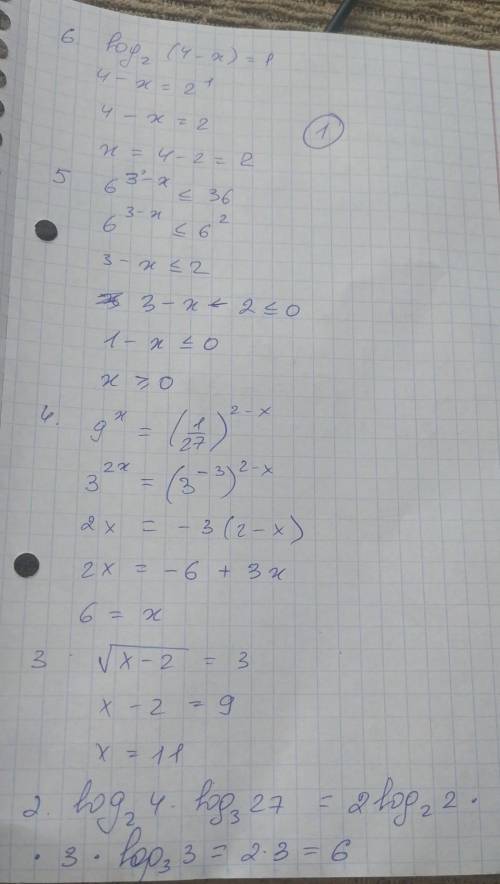 6 log₂ (4 - x) = 1
4 - x = 2¹
4 - x = 2
①
x = 4 - 2 = 2
5 6^(3 - x) ≤ 36
6^(3 - x) ≤ 6²
3 - x ≤ 2
3 - x - 2 ≤ 0
1 - x ≤ 0
x ≥ 0
4. 9^x = (1/27)^(2 - x)
3^(2x) = (3^(-3))^(2 - x)
2x = -3(2 - x)
2x = -6 + 3x
6 = x
3 √(x - 2) = 3
x - 2 = 9
x = 11
2. log₂ 4 · log₃ 27 = 2 log₂ 2 ·
· 3 · log₃ 3 = 2 · 3 = 6